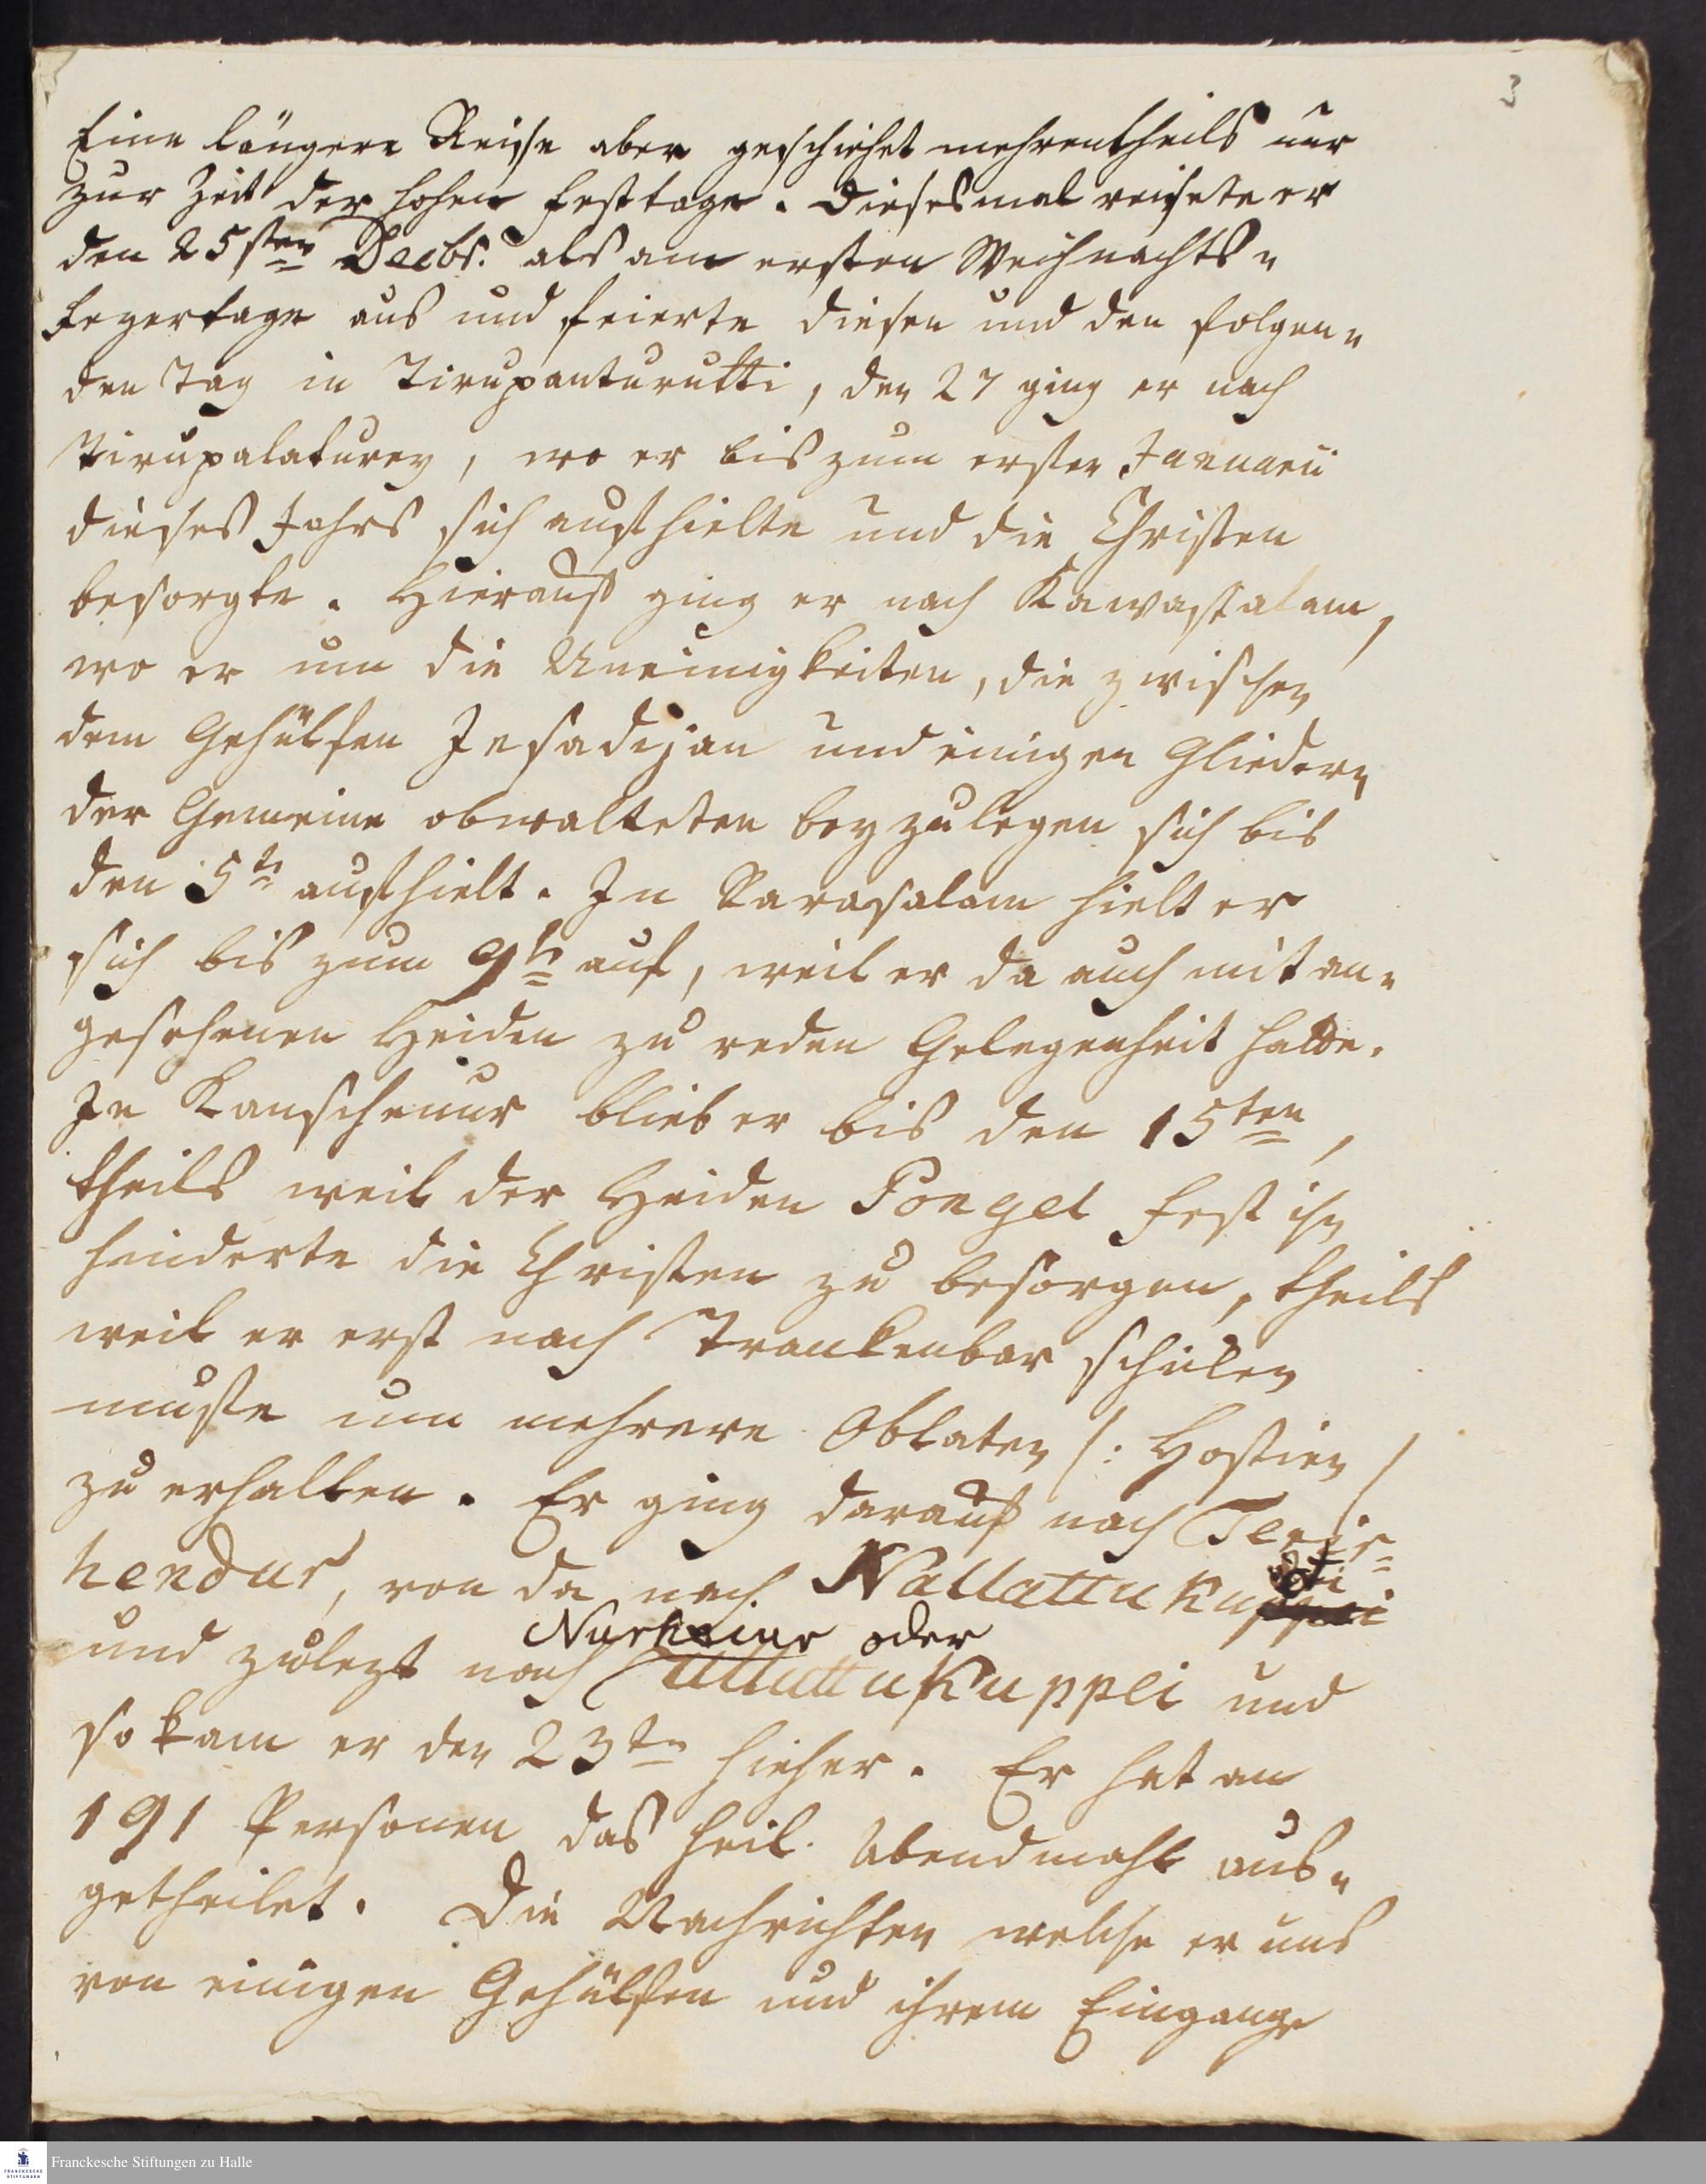 3
Eine längere Reise aber geschiehet mehrentheils nur
zur Zeit der hohen Festtage. Diesesmal reisete er
den 25sten Decbr. als am ersten Weihnachts-
Feyertage aus und feierte diesen und den folgen-
den Tag in Tirupanturutti, den 27 ging er nach
Tirupalaturey, wo er bis zum ersten Januarii
dieses Jahrs sich aufhielte und die Christen
besorgte. Hierauf ging er nach Kawastalam,
wo er um die Uneinigkeiten, die zwischen
dem Gehülfen Jesadijan und einigen Gliedern
der Gemeine obwalteten beyzulegen sich bis
den 5tn aufhielt. In Rarasalam hielt er
sich bis zum 9tn auf, weil er da auch mit an-
gesehenen Heiden zu reden Gelegenheit hatte.
In Kanschenur blieb er bis den 15ten,
theils weil der Heiden Pongel Fest ihn
hinderte die Christen zu besorgen, theils
weil er erst nach Trankenbar schicken
muste um mehrere Oblaten /: Hostien /
zu erhalten. Er ging darauf nach
hendur, von da nach Nallattukudi
und zulezt nach oder Ullattukuppei und
so kam er den 23tn hieher. Er hat an
191 Personen das heil. Abendmahl aus-
getheilet. Die Nachrichten welche er uns
von einigen Gehülfen und ihrem Eingange
Franckesche Stiftungen zu Halle